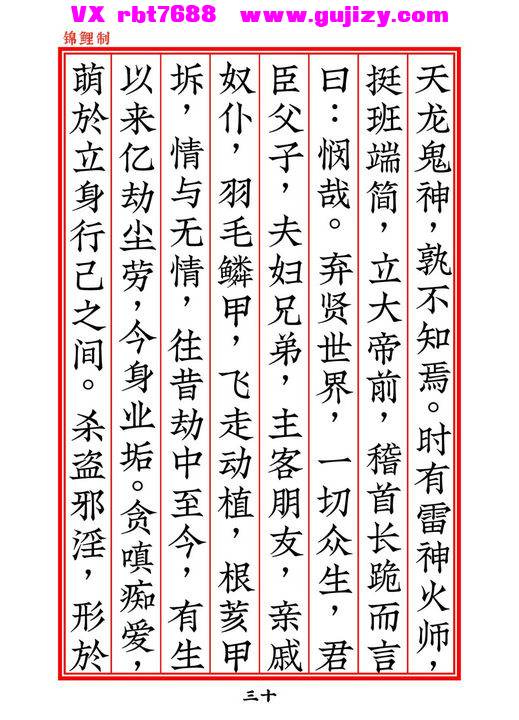 VX rbt7688 www.gujizy.com
锦鲤制
天龙鬼神，孰不知焉。时有雷神火师，
挺班端简，立大帝前，稽首长跪而言
曰：悯哉。弃贤世界，一切众生，君
臣父子，夫妇兄弟，主客朋友，亲戚
奴仆，羽毛鳞甲，飞走动植，根荄甲
坼，情与无情，往昔劫中至今，有生
以来亿劫尘劳，今身业垢。贪嗔痴爱，
萌於立身行己之间。杀盗邪淫，形於
三十